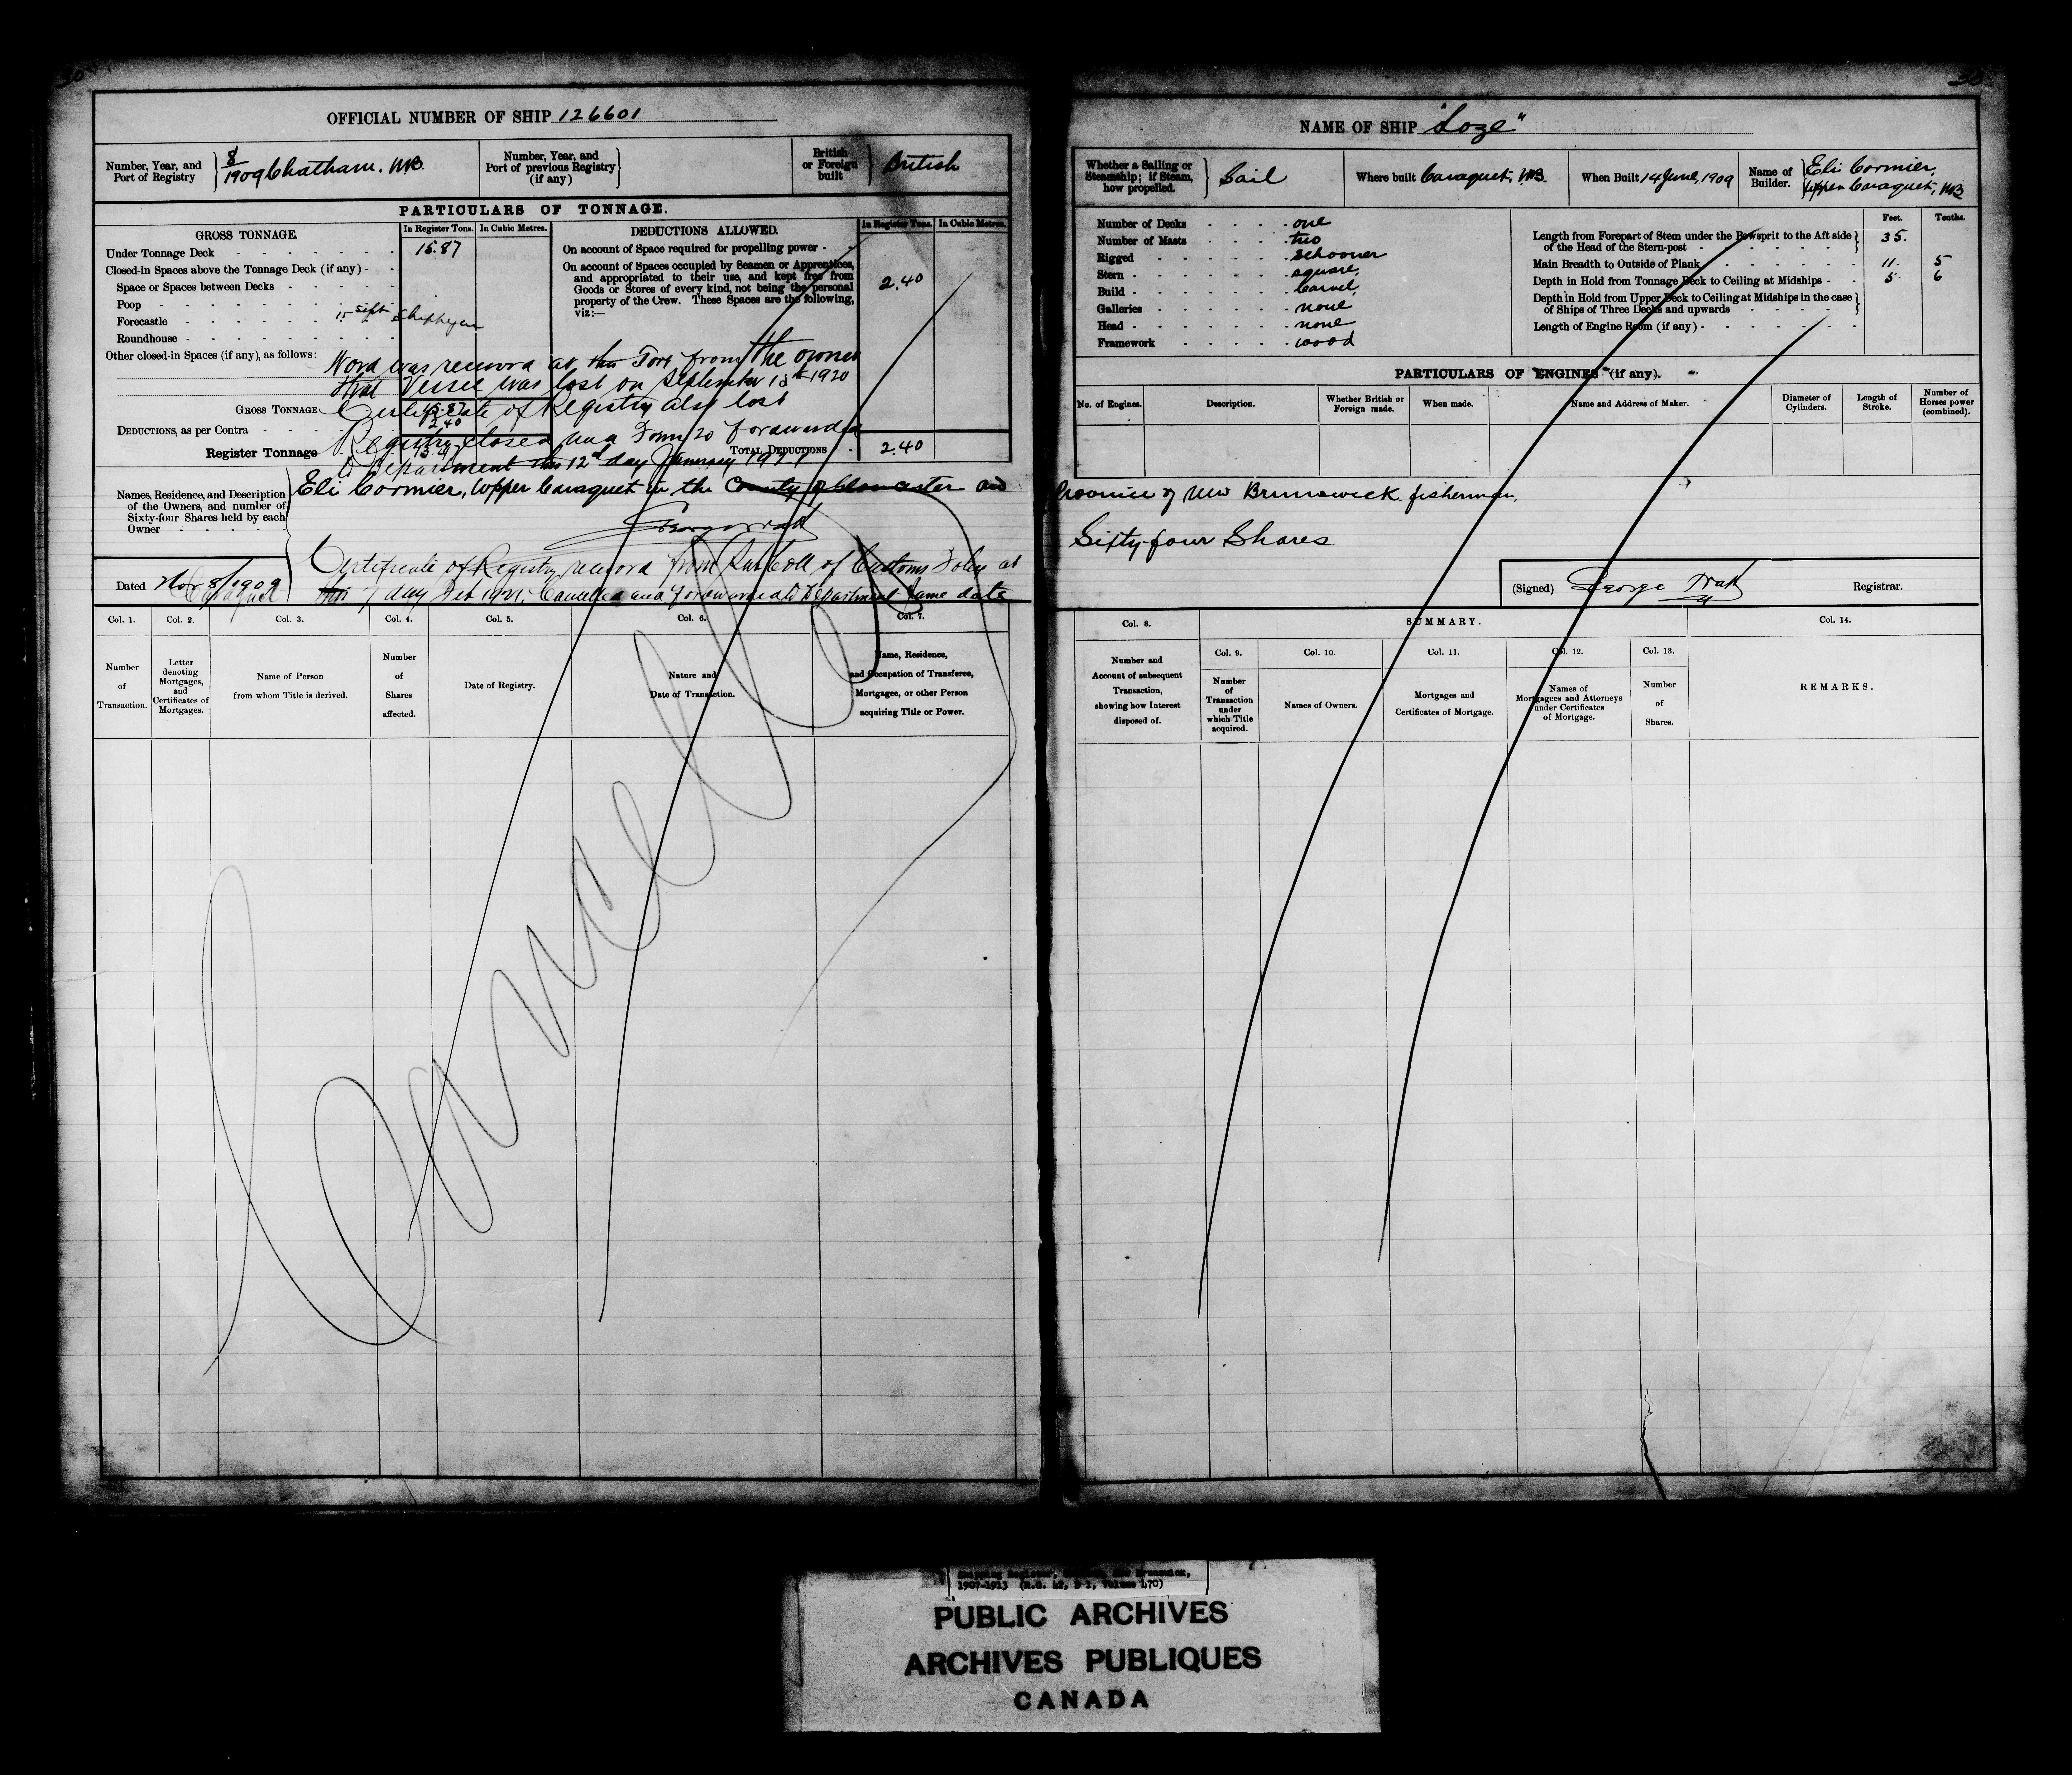 30
OFFICIAL NUMBER OF SHIP 126601
Number, Year, and Port of Registry
8/1909 Chatham. NB.
Number, Year, and Port of previous Registry (if any)
British or Foreign built
British
PARTICULARS OF TONNAGE.
GROSS TONNAGE.
In Register Tons.
In Cubic Metres.
DEDUCTIONS ALLOWED.
In Register Tons.
In Cubic Metres.
Under Tonnage Deck
15.87
Closed-in Spaces above the Tonnage Deck (if any)
Space or Spaces between Decks
Poop
Forecastle
Roundhouse
Other closed-in Spaces (if any), as follows:
On account of Space required for propelling power
On account of Spaces occupied by Seamen or Apprentices, and appropriated to their use, and kept free from Goods or Stores of every kind, not being the personal property of the Crew. These Spaces are the following, viz:—
2.40
15 Sept Shippegan
Word was received at this Port from the owner
that Vessel was lost on September 15th 1920
Certificate of Registry also lost
Registry closed and Form 20 forwarded
to Department this 12th day January 1921
GROSS TONNAGE
15.87
DEDUCTIONS, as per Contra
2.40
Register Tonnage
13.47
TOTAL DEDUCTIONS
2.40
Names, Residence, and Description of the Owners, and number of Sixty-four Shares held by each Owner
Eli Cormier, Upper Caraquet in the County of Gloucester and
Certificate of Registry received from Sub Coll of Customs Foley at
Caraquet this 7 day Feb 1921. Cancelled and forwarded to Department same date
Dated Nov 8/1909
Col. 1.
Col. 2.
Col. 3.
Col. 4.
Col. 5.
Col. 6.
Col. 7.
Number of Transaction.
Letter denoting Mortgages, and Certificates of Mortgages.
Name of Person from whom Title is derived.
Number of Shares affected.
Date of Registry.
Nature and Date of Transaction.
Name, Residence, and Occupation of Transferee, Mortgagee, or other Person acquiring Title or Power.
Cancelled
30
NAME OF SHIP "Loze"
Whether a Sailing or Steamship; if Steam, how propelled.
Sail
Where built Caraquet, NB.
When Built 14 June, 1909
Name of Builder.
Eli Cormier,
Upper Caraquet, NB
Number of Decks one
Number of Masts two
Rigged Schooner
Stern square,
Build Carvel,
Galleries none
Head none
Framework wood
Feet.
Tenths.
Length from Forepart of Stem under the Bowsprit to the Aft side of the Head of the Stern-post
35.
Main Breadth to Outside of Plank
11. 5
Depth in Hold from Tonnage Deck to Ceiling at Midships
5. 6
Depth in Hold from Upper Deck to Ceiling at Midships in the case of Ships of Three Decks and upwards
Length of Engine Room (if any)
PARTICULARS OF ENGINES (if any).
No. of Engines.
Description.
Whether British or Foreign made.
When made.
Name and Address of Maker.
Diameter of Cylinders.
Length of Stroke.
Number of Horses power (combined).
Province of New Brunswick. fisherman,
Sixty-four Shares
(Signed) George Watt
Registrar.
SUMMARY.
Col. 8.
Col. 9.
Col. 10.
Col. 11.
Col. 12.
Col. 13.
Col. 14.
Number and Account of subsequent Transaction, showing how Interest disposed of.
Number of Transaction under which Title acquired.
Names of Owners.
Mortgages and Certificates of Mortgage.
Names of Mortgagees and Attorneys under Certificates of Mortgage.
Number of Shares.
REMARKS.
Shipping Register, New Brunswick,
1907-1913 (R.G. 42, E 1, Volume 470)
PUBLIC ARCHIVES
ARCHIVES PUBLIQUES
CANADA